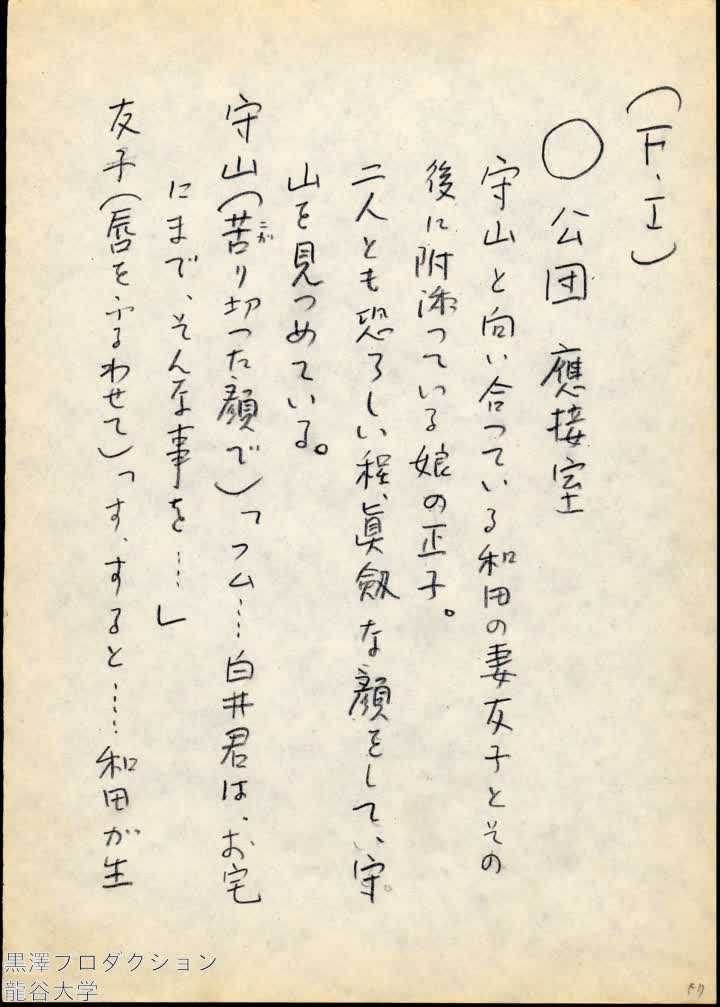 (F・I)
○公団 應接室
守山と向い合っている和田の妻友子とその
後に附添っている娘の正子。
二人とも恐ろしい程、眞劔な顔をしてい守
山を見つめている。
守山(苦り切った顔で)「フム……白井君は、お宅
にまで、そんな事を……」
友子(唇をふるわせて)「す、すると……和田が生
黒澤プロダクション
龍谷大学